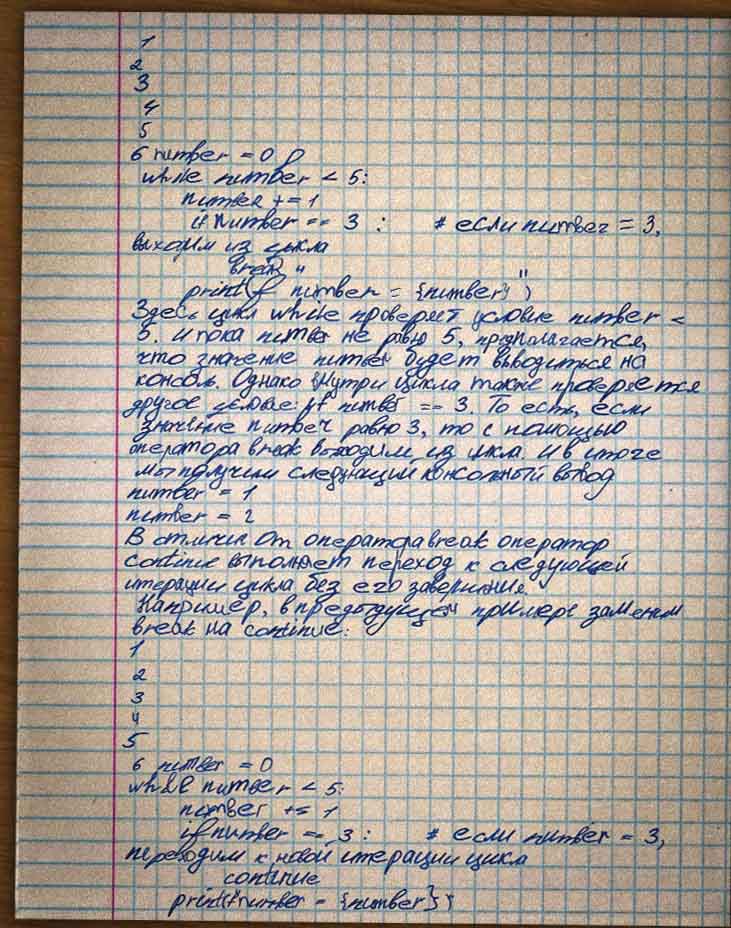 1
2
3
4
5
6 number = 0
while number < 5:
number += 1
if number == 3 : # если number = 3,
выходим из цикла
break
print(f" number = {number}")
Здесь цикл while проверяет условие number <
5. И пока number не равно 5, предполагается,
что значение number будет выводиться на
консоль. Однако внутри цикла также проверяется
другое условие: if number == 3. То есть, если
значение number равно 3, то с помощью
оператора break выходим из цикла. И в итоге
мы получим следующий консольный вывод
number = 1
number = 2
В отличии от оператора break оператор
continue выполняет переход к следующей
итерации цикла без его завершения.
Например, в предыдущем примере заменим
break на continue:
1
2
3
4
5
6 number = 0
while number < 5:
number += 1
if number == 3 : # если number = 3,
переходим к новой итерации цикла
continue
print(f"number = {number}")